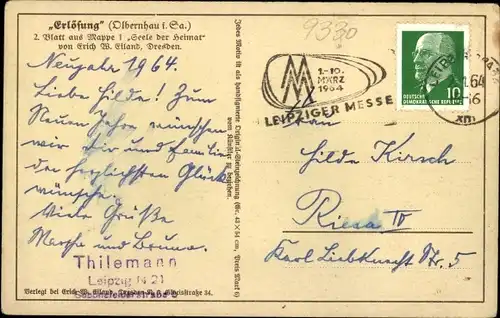 „Erlösung" (Olbernhau i. Sa.)
2. Blatt aus Mappe 1 „Seele der Heimat"
von Erich W. Eiland, Dresden.
Neujahr 1964.
Liebe Hilde! Zum
Neuen Jahre wünschen
wir Dir und Familie
die herzlichsten Glück-
wünsche.
Viele Grüße
Marthe und Bruno.
Thilemann
Leipzig N 21
Verlegt bei Erich W. Eiland, Dresden
straße 34.
Jedes Motiv ist als handsignierte Origin.-Steinzeichnung (Gr. 42 × 54 cm, Preis Mark 6)
vom Künstler zu beziehen.
9330
MM
1.-10.
MÄRZ
1964
LEIPZIGER MESSE
10
DEUTSCHE
DEMOKRATISCHE REPUBLIK
64
XM
Frau
Hilde Kirsch
Riesa IV
Karl Liebknecht Str. 5